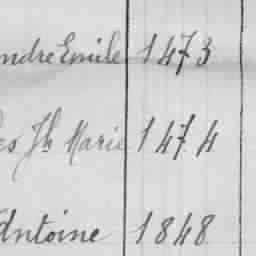 ndre Emile 1473
es Jh Marie 1474
Antoine 1848